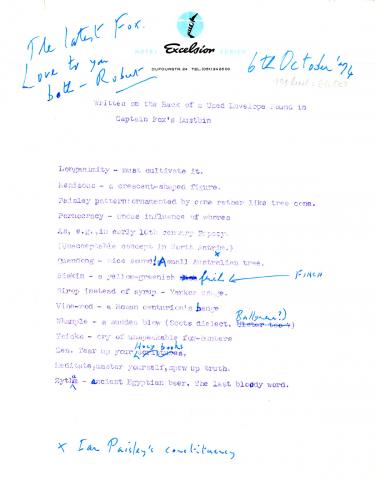 The latest Fox.
Love to you
both - Robert
HOTEL Excelsior ZURICH
DUFOURSTR. 24 TEL. (051) 34 25 00
6th October '74
Written on the Back of a Used Envelope Found in
Captain Fox's Dustbin
Longanimity - must cultivate it.
Meniscus - a crescent-shaped figure.
Paisley pattern:ornamented by cone rather like tree cone.
Pornocracy - undue influence of whores
As, e.g., in early 10th century Papacy.
(Unacceptable concept in North Antrim.)
x
Quandong - nice sound! A small Australian tree.
Siskin - a yellow-greenish finch
FINCH
Sirop instead of syrup - Yankee usage.
Vine-rod - a Roman centurion's badge
Whample - a sudden blow (Scots dialect. Ulster too?)
Ballymena?)
Yoicks - cry of unspeakable fox-hunters
Zen. Tear up your
Holy books
Meditate, master yourself, spew up truth.
Zythum - ancient Egyptian beer. The last bloody word.
x Ian Paisley's constituency